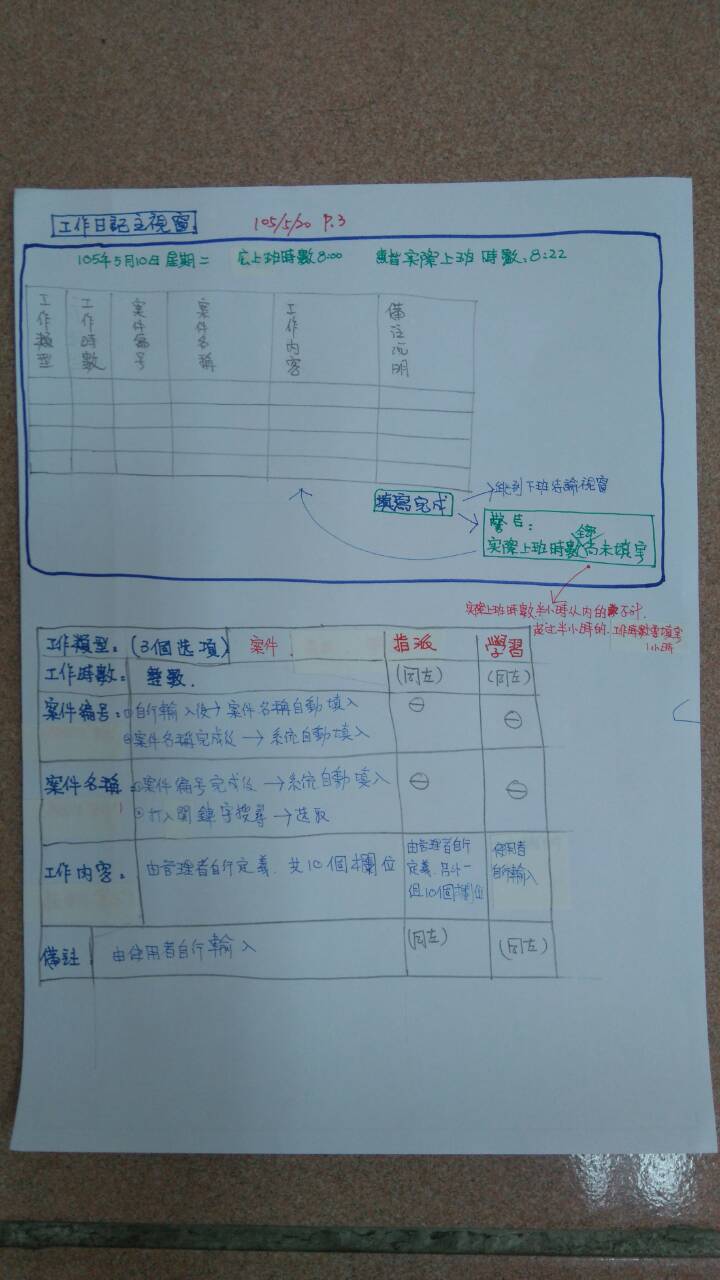 工作日記主視窗 105/5/20 P.3
105年5月10日 星期二 应上班時數8:00 實际上班時數:8:22
工作類型 工作時數 案件編号 案件名稱 工作内容 備註説明
填寫完成 →跳到下班結論視窗
警告:
实際上班時數尚未填寫
实際上班時數半小時以内的不計.
超过半小時的,工作時數需填寫
1小時
工作類型:(3個选項) 案件. 指派 學習
工作時數: 整數. (同左) (同左)
案件編号:①自行輸入後→案件名稱自動填入 ⊖ ⊖
②案件名稱完成後→系統自動填入
案件名稱:①案件編号完成後→系統自動填入 ⊖ ⊖
②打入関鍵字搜尋→选取
工作内容: 由管理者自行定義.共10個欄位 由管理者自行 使用者
定義.另外一 自行輸入
組10個欄位
備註 由使用者自行輸入 (同左) (同左)